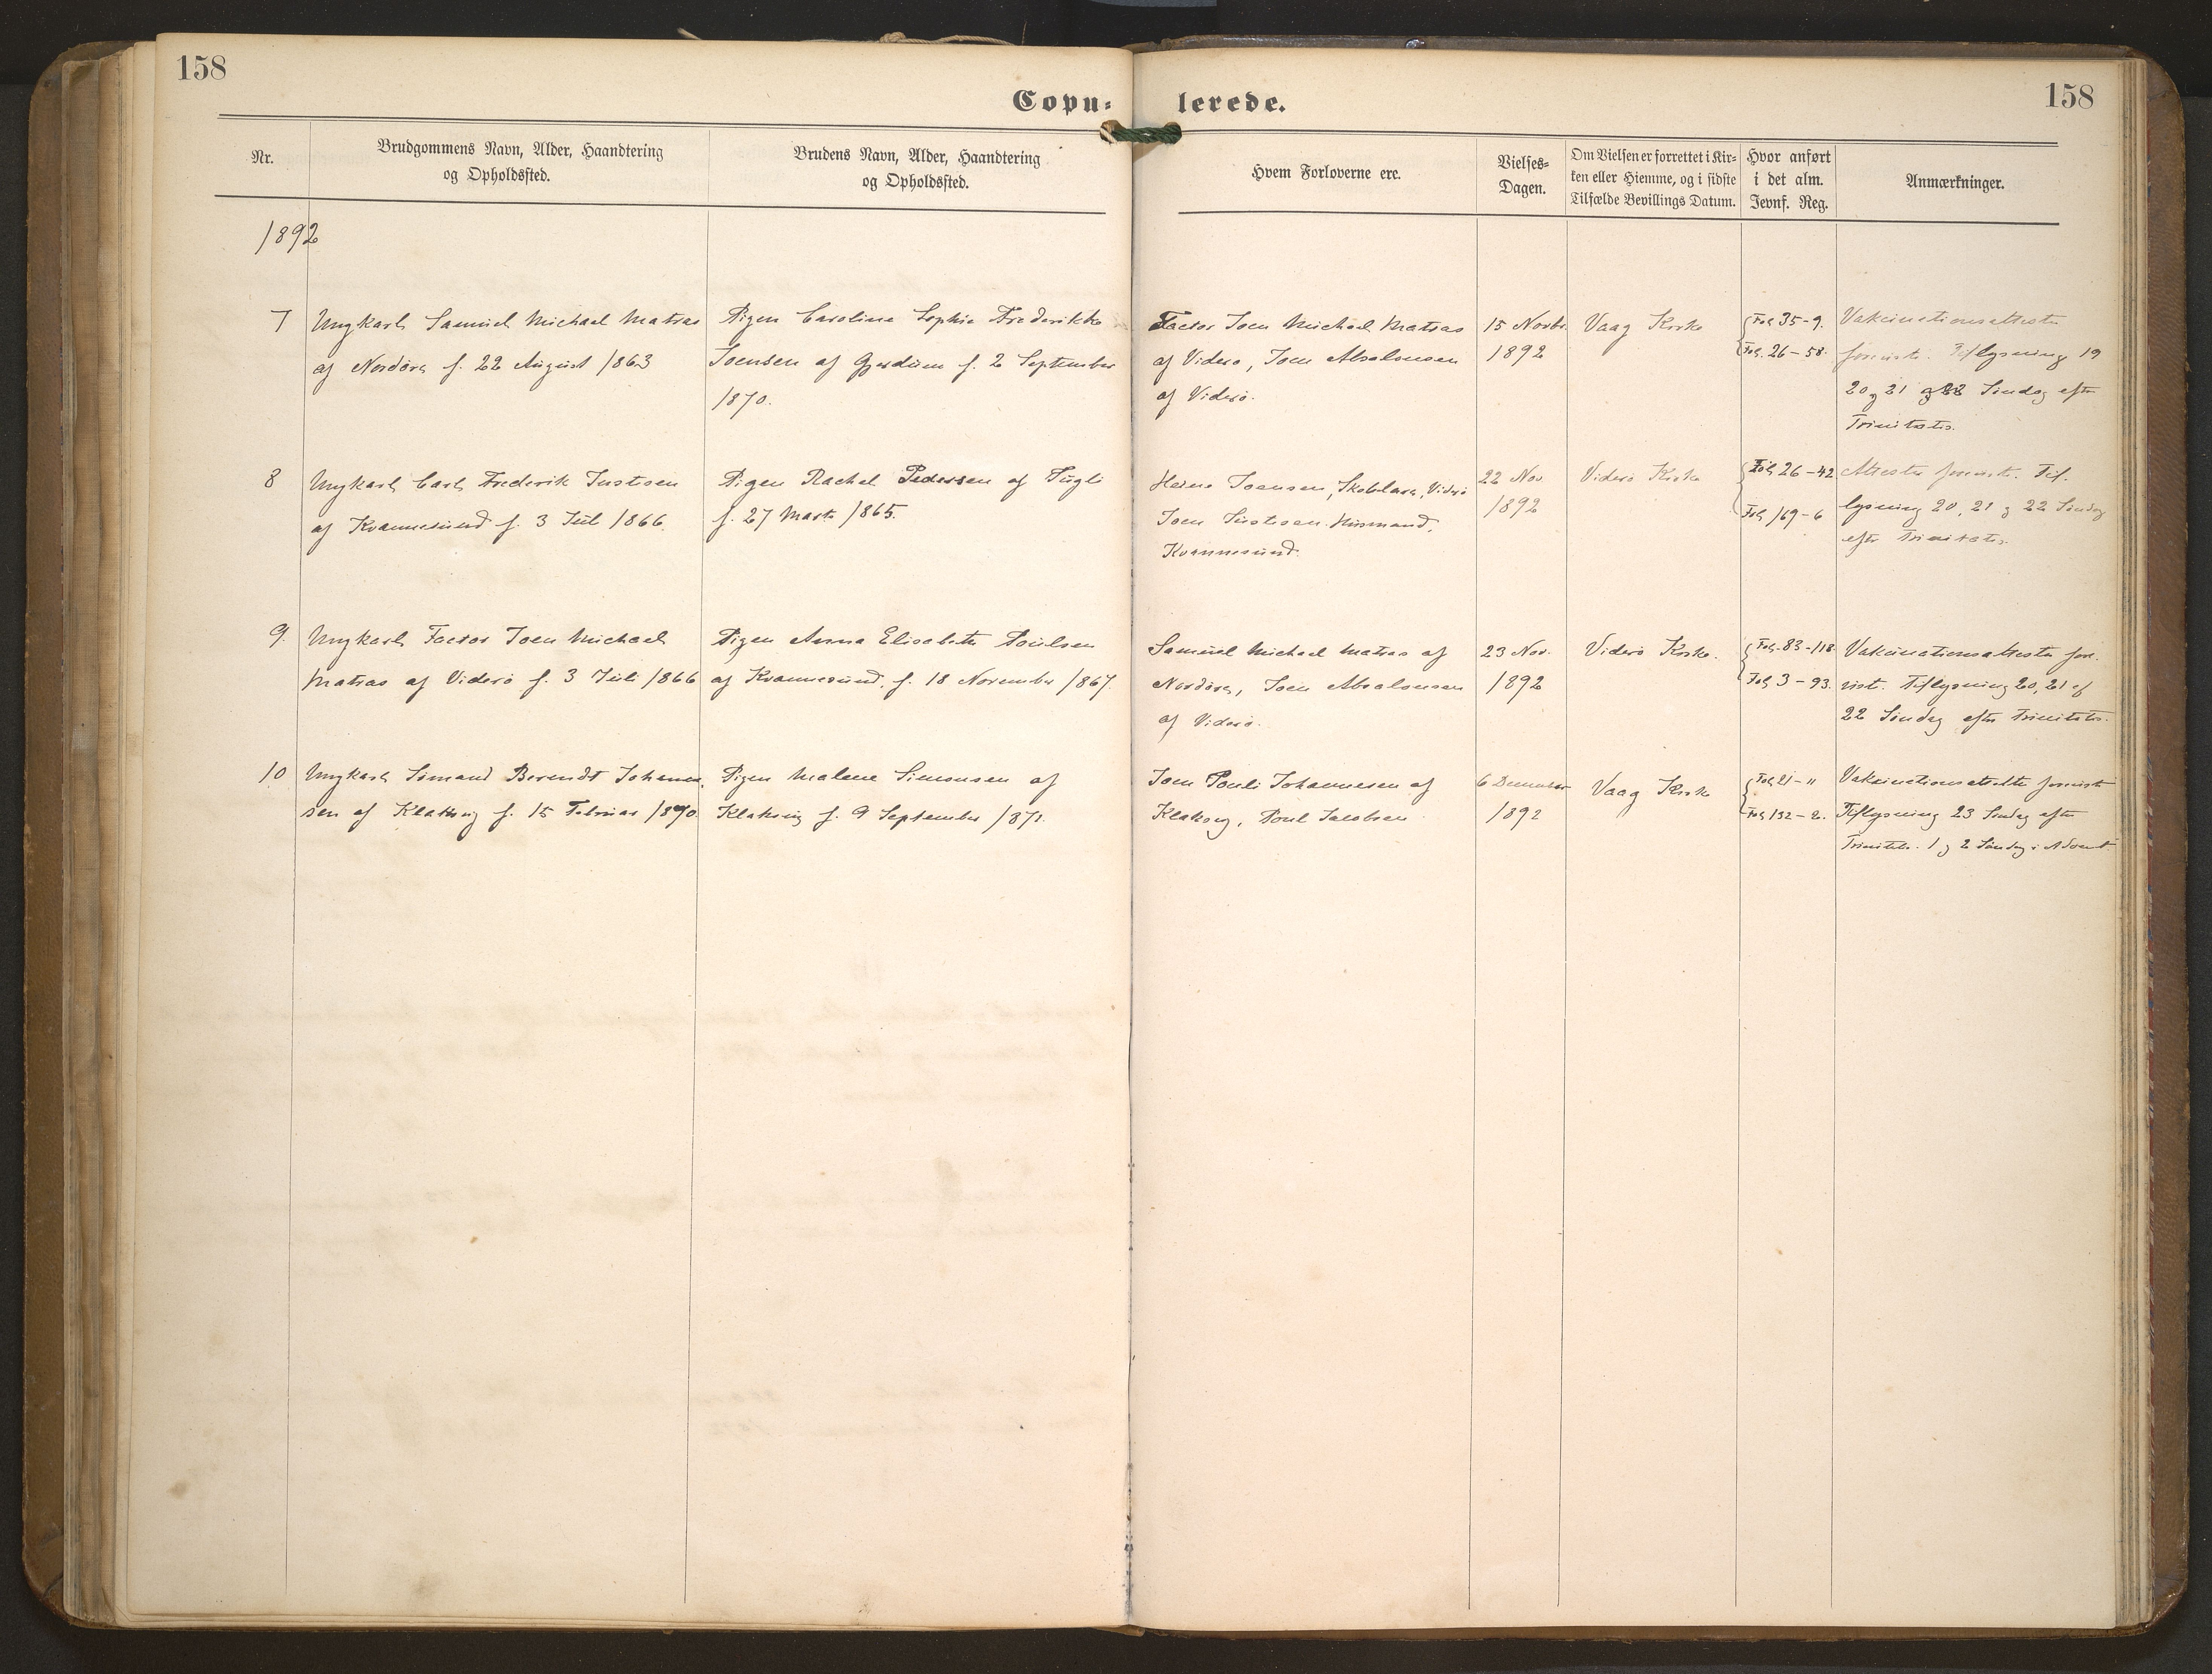 158
158
Copu-
lerede.
Nr.
Brudgommens Navn, Alder, Haandtering
og Opholdssted.
Brudens Navn, Alder, Haandtering
og Opholdssted.
Hvem Forloverne ere.
Vielses-
Dagen.
Om Vielsen er forrettet i Kir-
ken eller Hiemme, og i sidste
Tilfælde Bevillings Datum.
Hvor anført
i det alm.
Jevnf. Reg.
Anmærkninger.
1892
7
Ungkarl Samuel Michael Matras
af Nordöre f. 22 August 1863
Pigen Caroline Sophie Frederikke
Joensen af Gjerdum f. 2 September
1870.
Factor Joen Michael Matras
af Viderö, Joen Absalonsen
af Viderö.
15 Novbr.
1892
Vaag Kirke
Fol. 35-9.
Fol. 26-58.
Vakcinationsattester
forevist. Tillysning 19
20 og 21 Søndag efter
Trinitatis.
8
Ungkarl Carl Frederik Justesen
af Kvannesund f. 3 Juli 1866.
Pigen Rachel Pedersen af Fugle
f. 27 Marts 1865.
Heine Joensen, Skolelærer, Viderö
Joen Justesen Husmand,
Kvannesund.
22 Nov
1892
Viderö Kirke
Fol. 26-42
Fol. 169-6
Attester forevist. Til-
lysning 20, 21 og 22 Søndag
efter Trinitatis.
9.
Ungkarl Factor Joen Michael
Matras af Viderö f. 3 Juli 1866
Pigen Anna Elisabeth Poulsen
af Kvannesund, f. 18 November 1867.
Samuel Michael Matras af
Nordöre, Joen Absalonsen
af Viderö.
23 Nov.
1892
Viderö Kirke.
Fol. 83-118
Fol. 3-93.
Vakcinationsattester fore-
vist. Tillysning 20, 21 og
22 Søndag efter Trinitatis.
10
Ungkarl Simund Berendt Johanne-
sen af Klaksvig f. 15 Februar 1870.
Pigen Malene Simonsen af
Klaksvig f. 9 September 1871.
Joen Pouli Johannesen af
Klaksvig, Poul Jacobsen
6 December
1892
Vaag Kirke
Fol. 21-11
Fol. 132-2.
Vakcinationsattester forevist
Tillysning 23 Søndag efter
Trinitatis. 1 og 2 Søndag i Advent